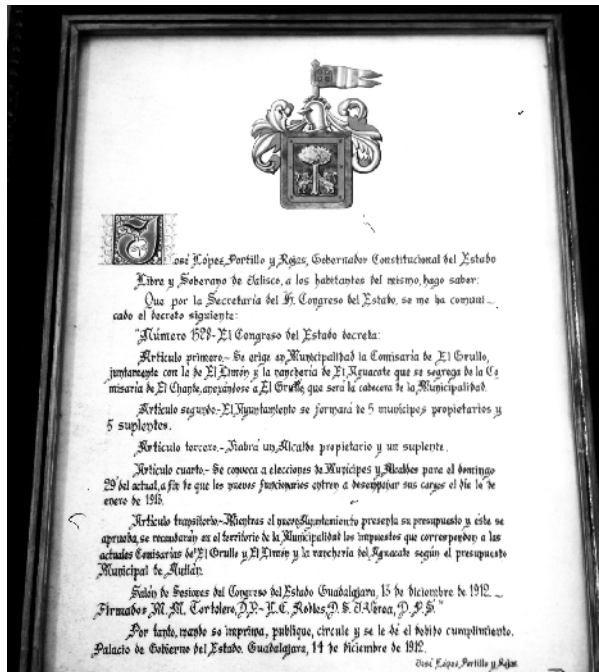 José López Portillo y Rojas, Gobernador Constitucional del Estado
Libre y Soberano de Jalisco, a los habitantes del mismo, hago saber:
Que por la Secretaría del H. Congreso del Estado, se me ha comuni-
cado el decreto siguiente:
"Número 1528- El Congreso del Estado decreta:
Artículo primero.- Se erige en Municipalidad la Comisaría de El Grullo,
juntamente con la de El Limón y la ranchería de El Aguacate que se segrega de la Co
misaría de El Chante, anexándose a El Grullo, que será la cabecera de la Municipalidad.
Artículo segundo.- El Ayuntamiento se formará de 5 munícipes propietarios y
5 suplentes.
Artículo tercero.- Habrá un Alcalde propietario y un suplente.
Artículo cuarto.- Se convoca a elecciones de Munícipes y Alcaldes para el domingo
29 del actual, a fin de que los nuevos funcionarios entren a desempeñar sus cargos el día 1o de
enero de 1913.
Artículo transitorio.- Mientras el nuevo Ayuntamiento presenta su presupuesto y éste se
aprueba, se recaudarán en el territorio de la Municipalidad los impuestos que corresponden a las
actuales Comisarías de El Grullo y El Limón y la ranchería del Aguacate según el presupuesto
Municipal de Autlán.
Salón de Sesiones del Congreso del Estado Guadalajara, 13 de diciembre de 1912.-
Firmados M. M. Tortolero, D.P.- L.C. Robles, D.S. D.P.S."
Por tanto, mando se imprima, publique, circule y se le dé el debido cumplimiento.
Palacio de Gobierno del Estado. Guadalajara, 14 de diciembre de 1912.
José López Portillo y Rojas